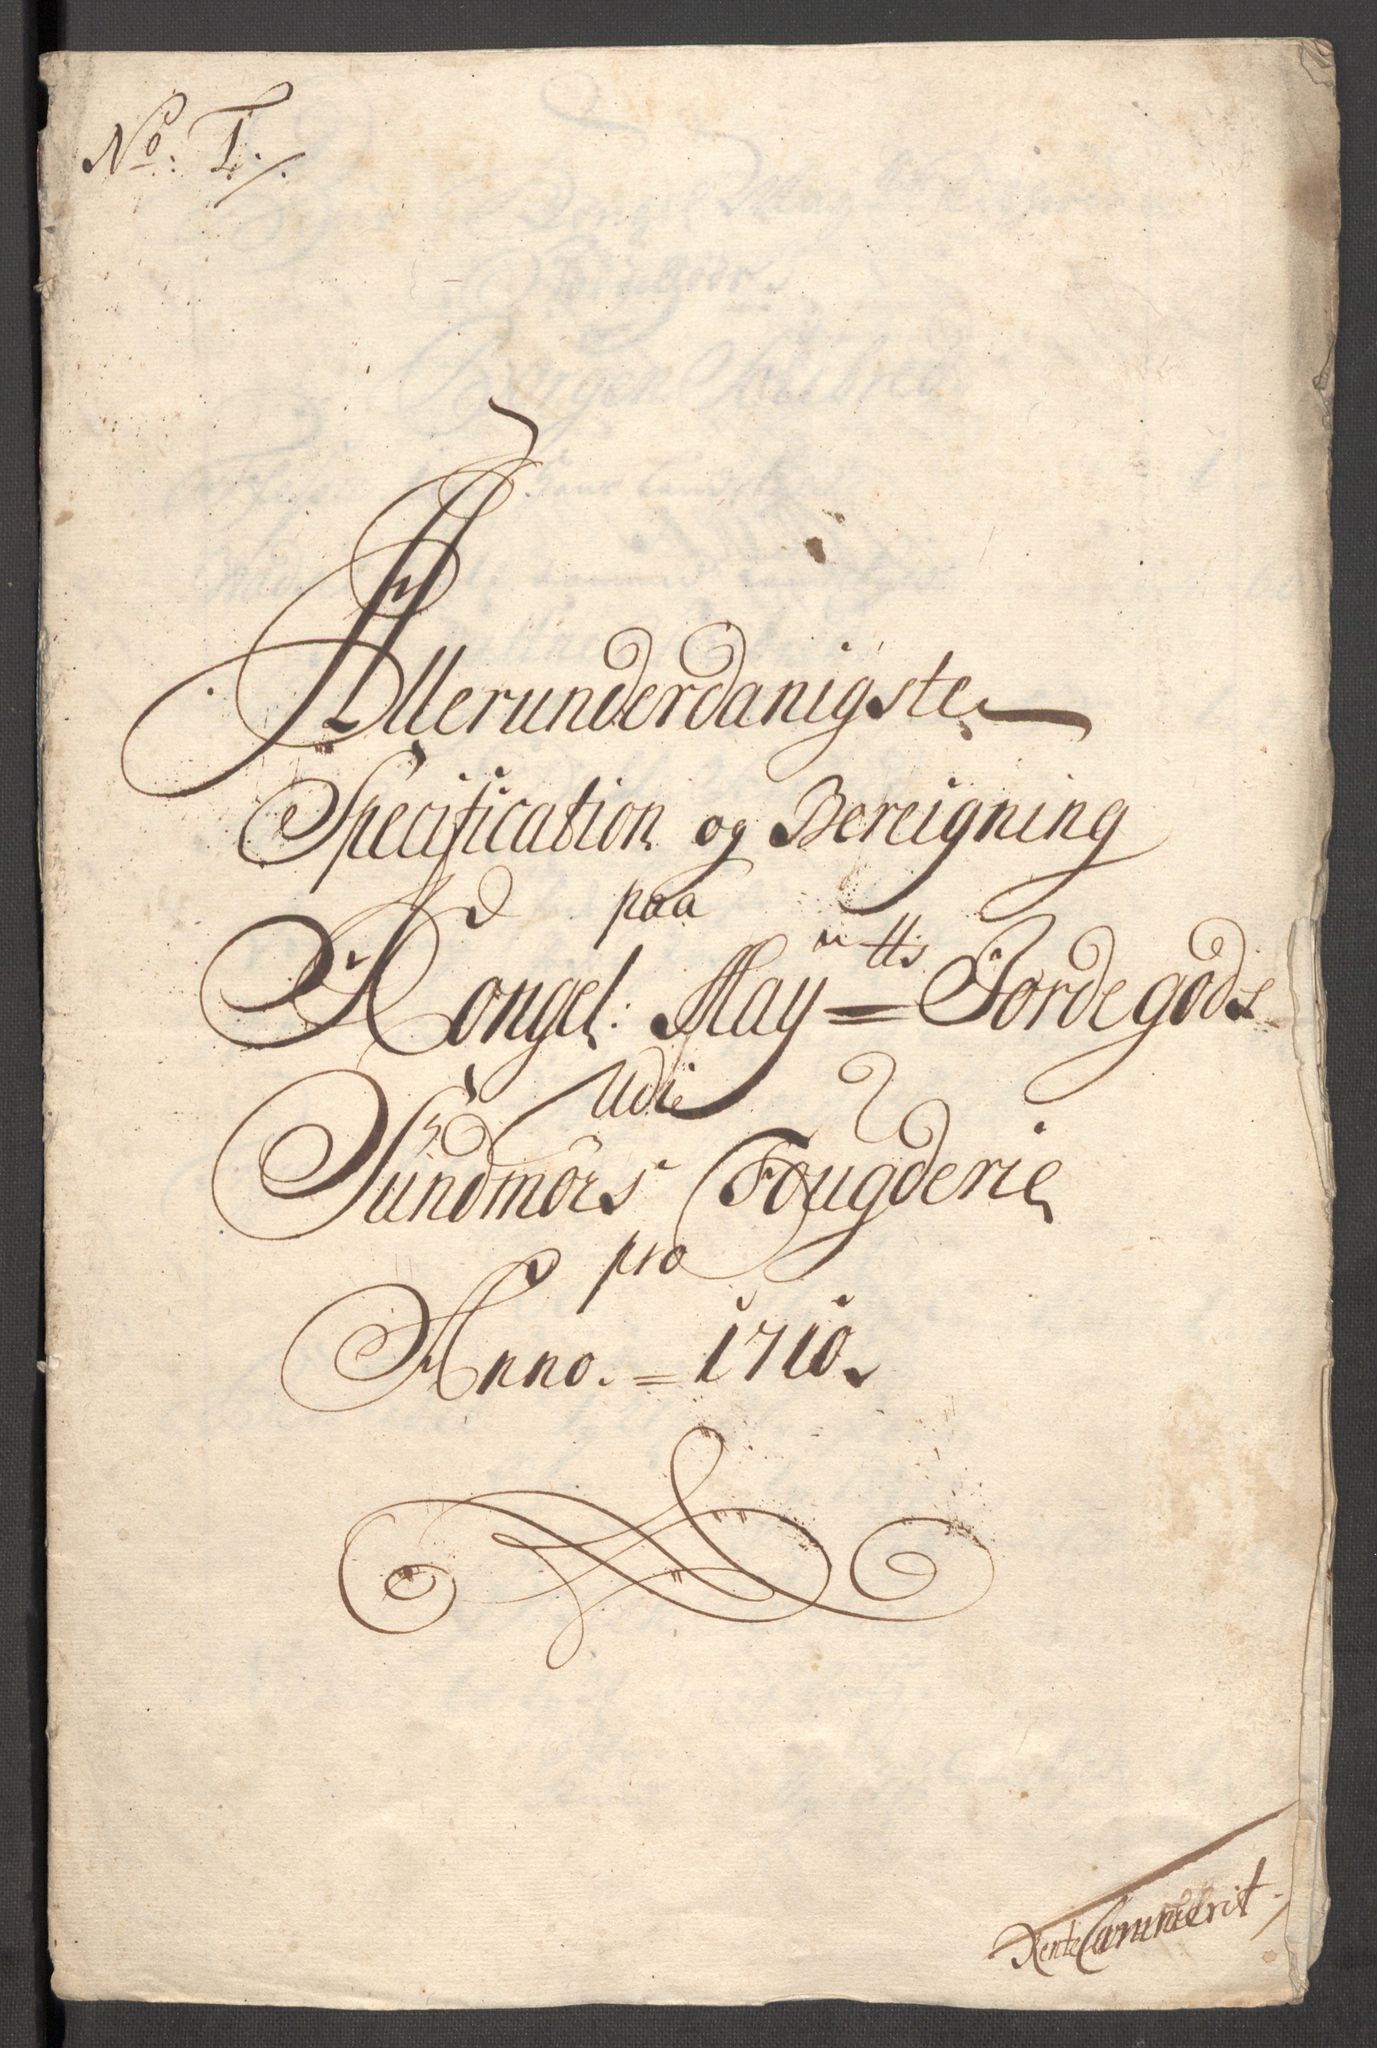 No: I.
Allerunderdanigste
Specification og Bereigning
paa
Kongel: May tts Jordegods
Udi
Sundmörs Fougderie
pro
Anno. = 1710.
Rente Cammerit.